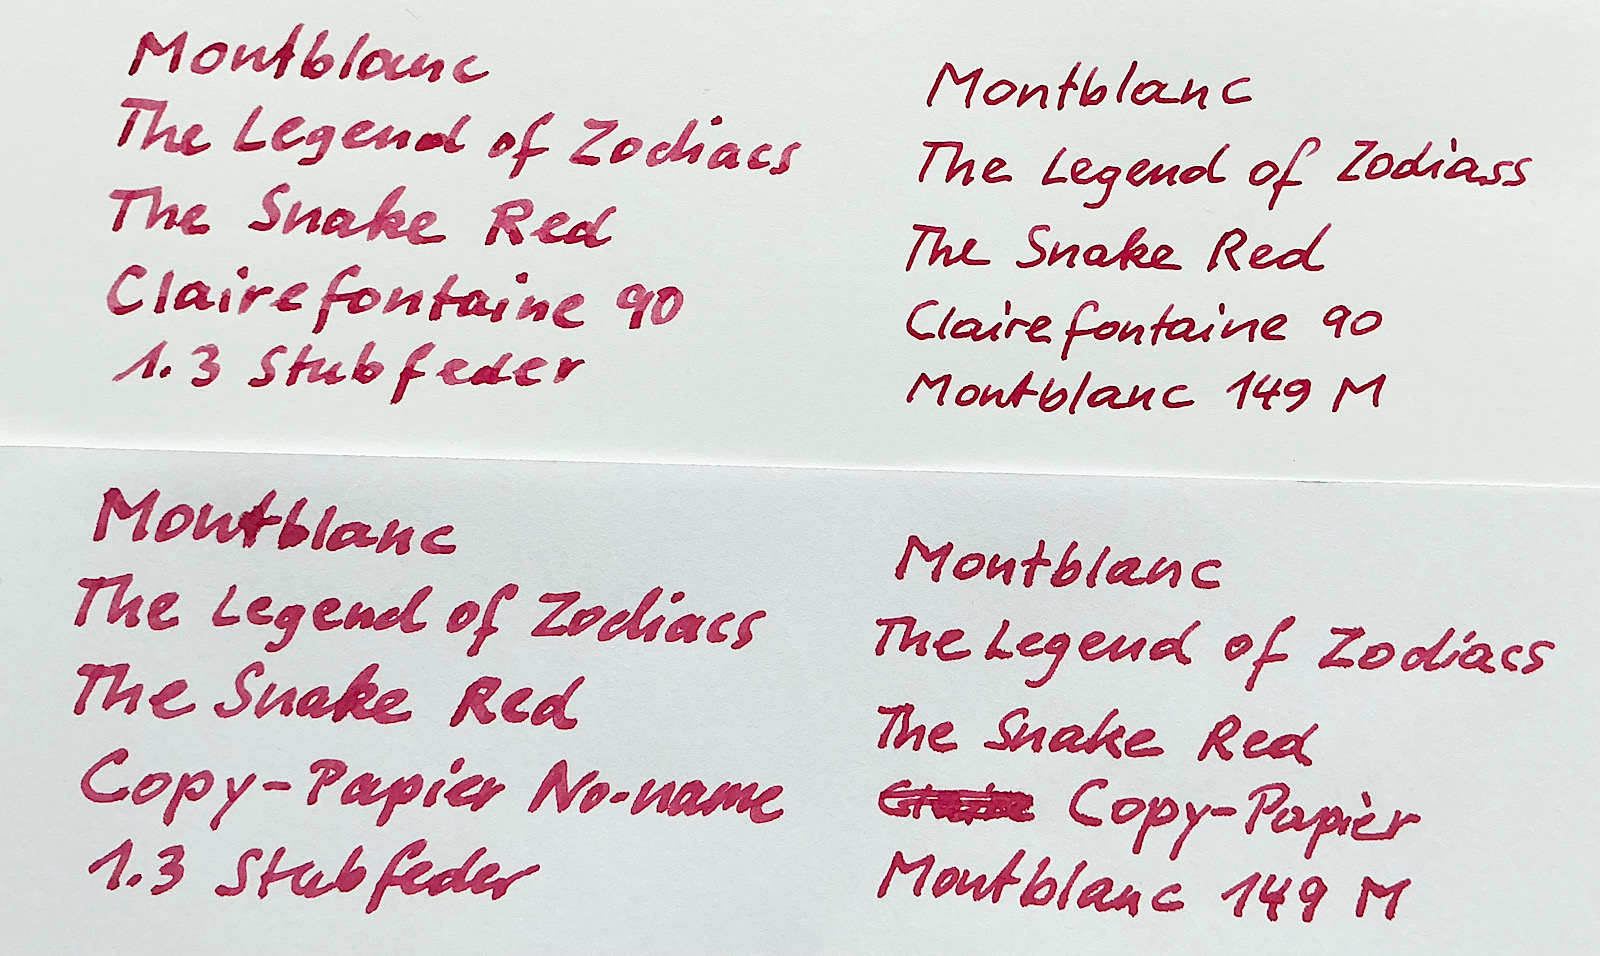 Montblanc
The Legend of Zodiacs
The Snake Red
Clairefontaine 90
1.3 Stubfeder
Montblanc
The Legend of Zodiass
The Snake Red
Clairefontaine 90
Montblanc 149 M
Montblanc
The Legend of Zodiacs
The Snake Red
Copy-Papier No-name
1.3 Stubfeder
Montblanc
The Legend of Zodiacs
The Snake Red
Copy-Papier
Montblanc 149 M